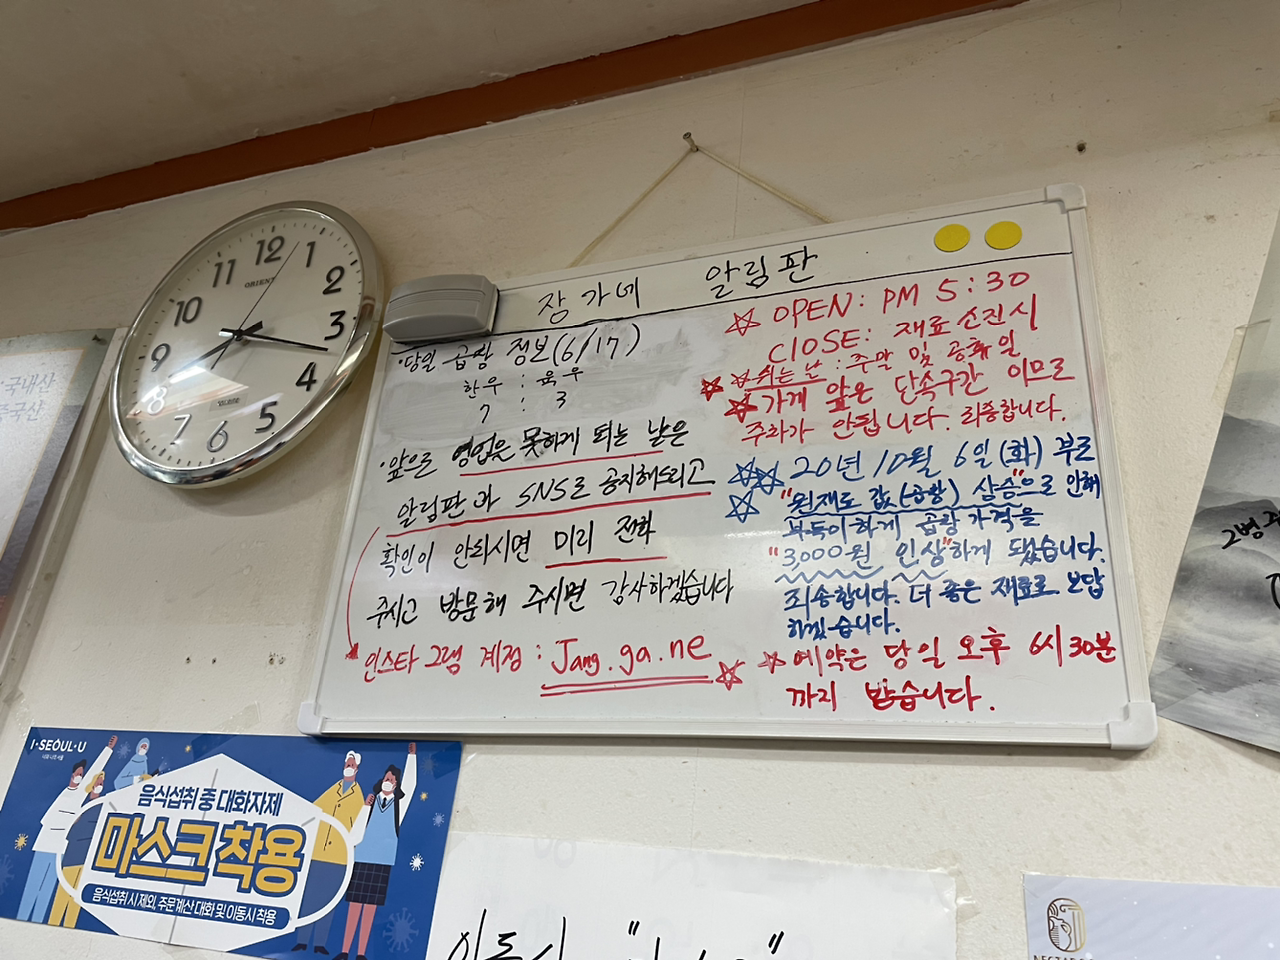 장가네 알림판
·당일 곱창 정보(6/17)
한우 : 육우
7 : 3
·앞으로 영업은 못하게 되는 날은
알림판과 SNS로 공지해드리고
확인이 안되시면 미리 전화
주시고 방문해 주시면 감사하겠습니다
인스타그램 계정 : Jang.ga.ne
OPEN: PM 5:30
ClOSE: 재료소진시
쉬는날 : 주말 및 공휴일
가게 앞은 단속구간 이므로
주차가 안됩니다. 죄송합니다.
20년 10월 6일(화)부로
"원재료 값(곱창) 상승"으로 인해
부득이하게 곱창가격을
"3,000원 인상"하게 됐습니다.
죄송합니다. 더 좋은 재료로 보답
하겠습니다.
예약은 당일 오후 6시30분
까지 받습니다.
12
1
2
3
4
5
6
7
8
9
10
11
ORIENT
국내산
중국산
2병
I·SEOUL·U
음식섭취 중 대화자제
마스크 착용
음식섭취 시 제외, 주문계산 대화 및 이동시 착용
이동시